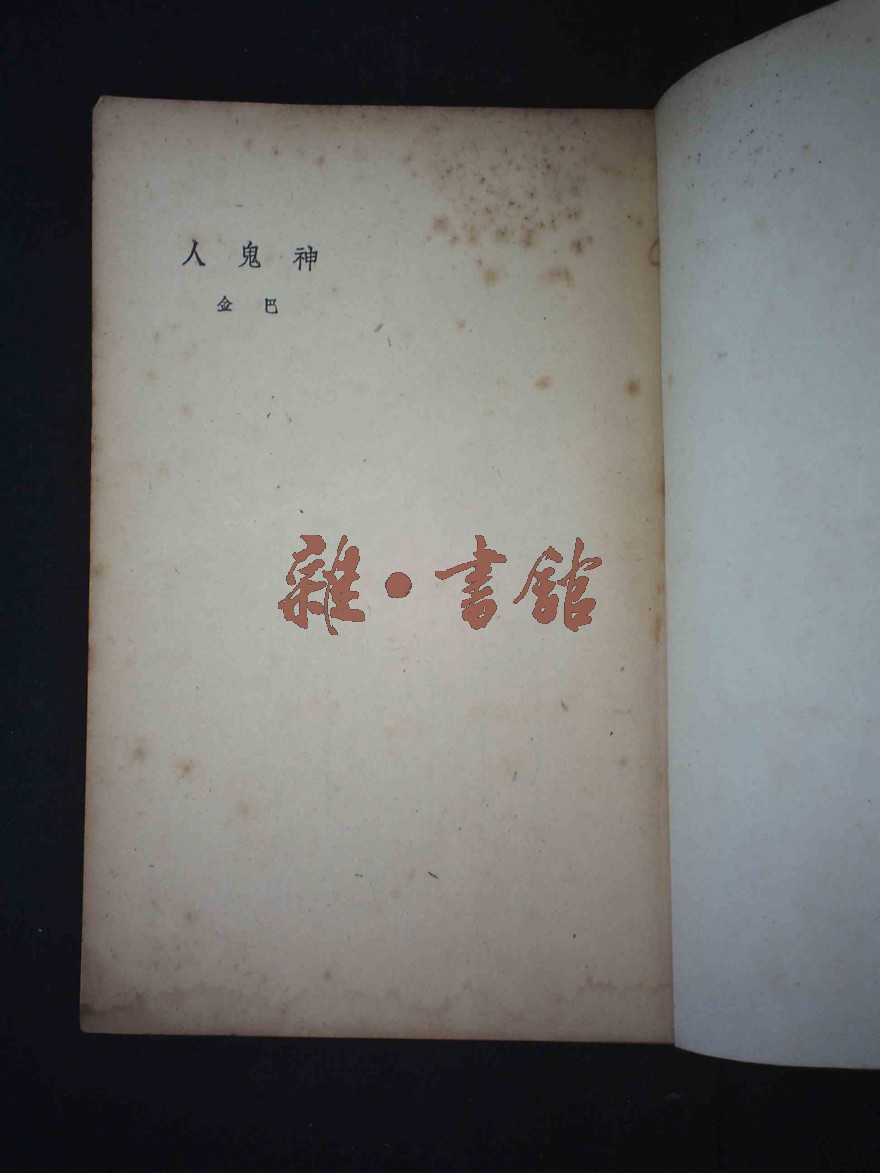 神鬼人
巴金
雜•書館